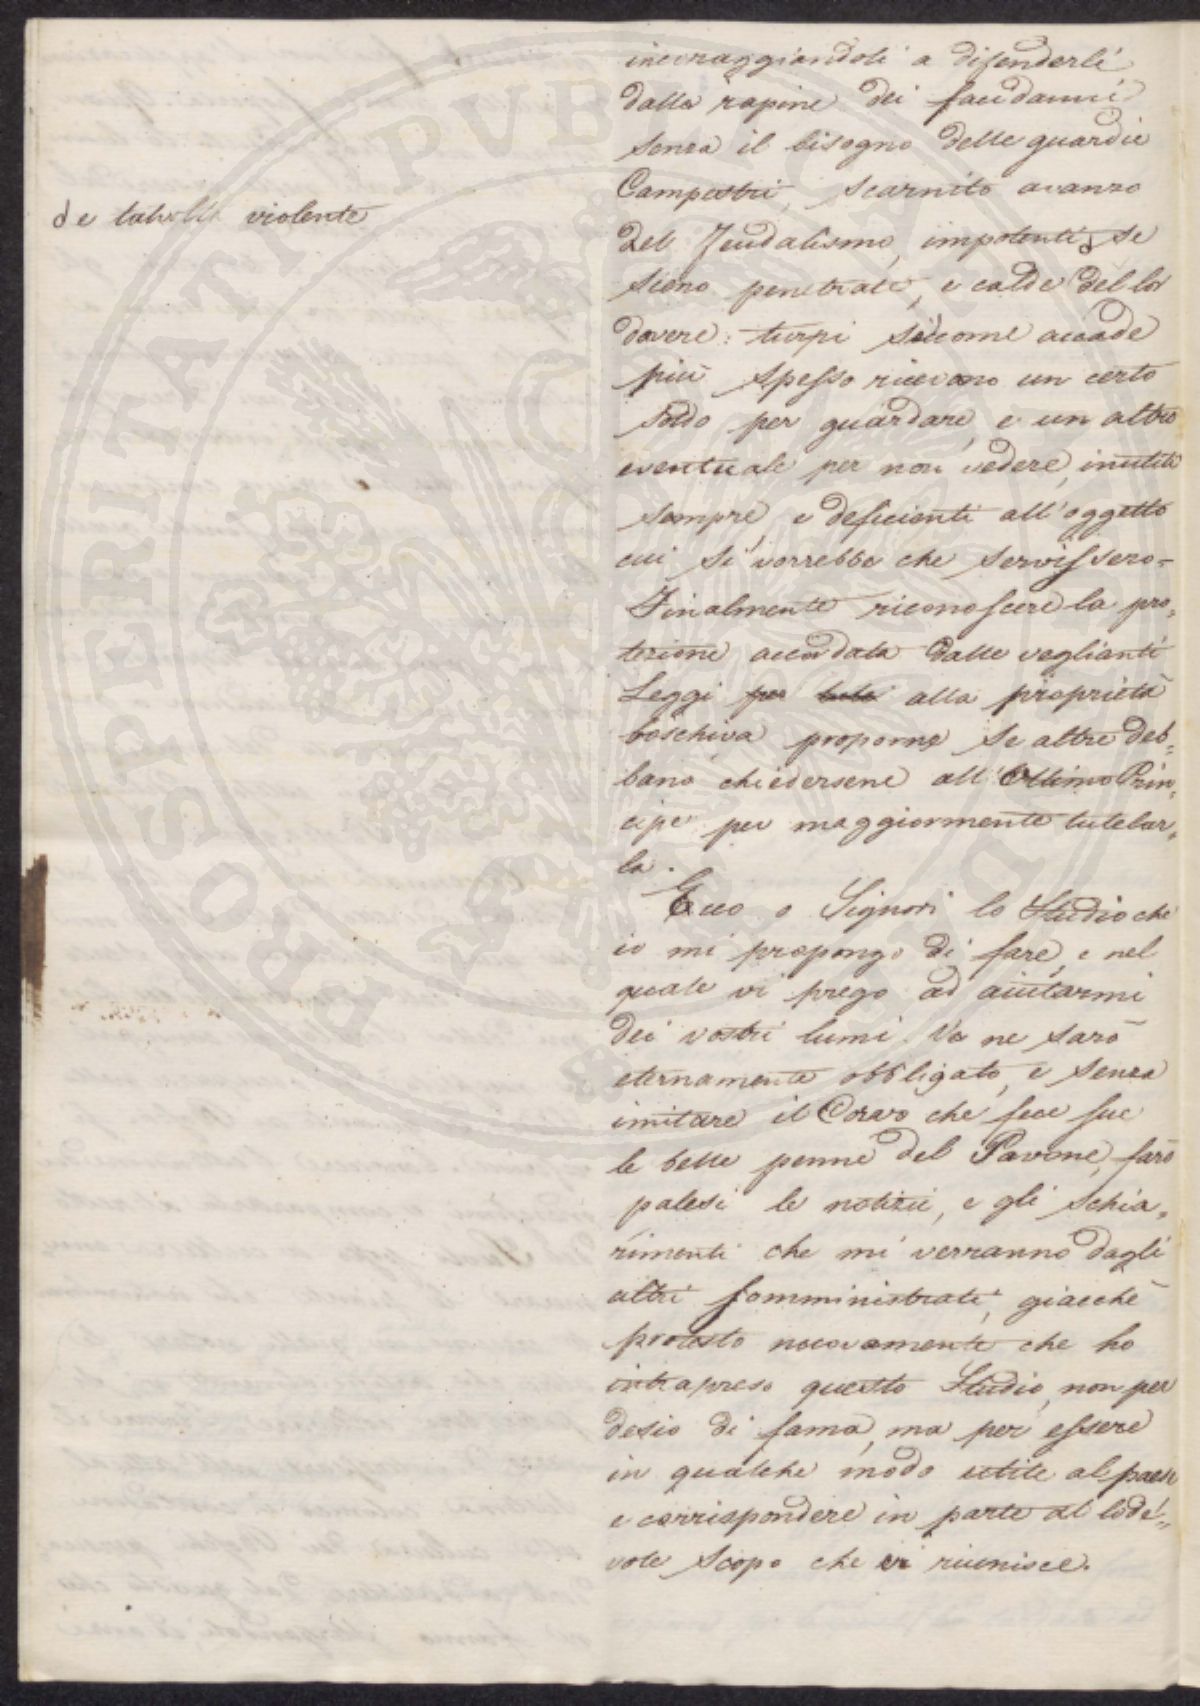 incoraggiandoli a difenderli
dalla rapine dei faudanni
senza il bisogno delle guardie
Campestri, scarnito avanzo
de talvolta violente
del Feudalismo, impotenti se
sieno penetrate, e calde del lor
dovere: turpi siccome accade
più spesso ricevono un certo
soldo per guardare, e un altro
eventuale per non vedere, inutili
sempre, e deficienti all'oggetto
cui si vorrebbe che servissero=
Finalmente riconoscere la pro-
tezione accordata dalle veglianti
Leggi per tute alla proprietà
boschiva proporne se altre deb-
bano chiedersene all'Ottimo Prin-
cipe per maggiormente tutelar-
la.
Ecco o Signori lo Studio che
io mi propongo di fare, e nel
quale vi prego ad aiutarmi
dei vostri lumi. Va ne sarò
eternamente obbligato, e senza
imitare il Corvo che fece sue
le belle penne del Pavone, farò
palesi le notizie, e gli schia-
rimenti che mi verranno dagli
altri somministrati, giacchè
protesto nuovamente che ho
intrapreso questo Studio, non per
desio di fama, ma per essere
in qualche modo utile al paese
e corrispondere in parte al lode-
vole scopo che vi riunisce.
PROSPERITATI PVBLICAE